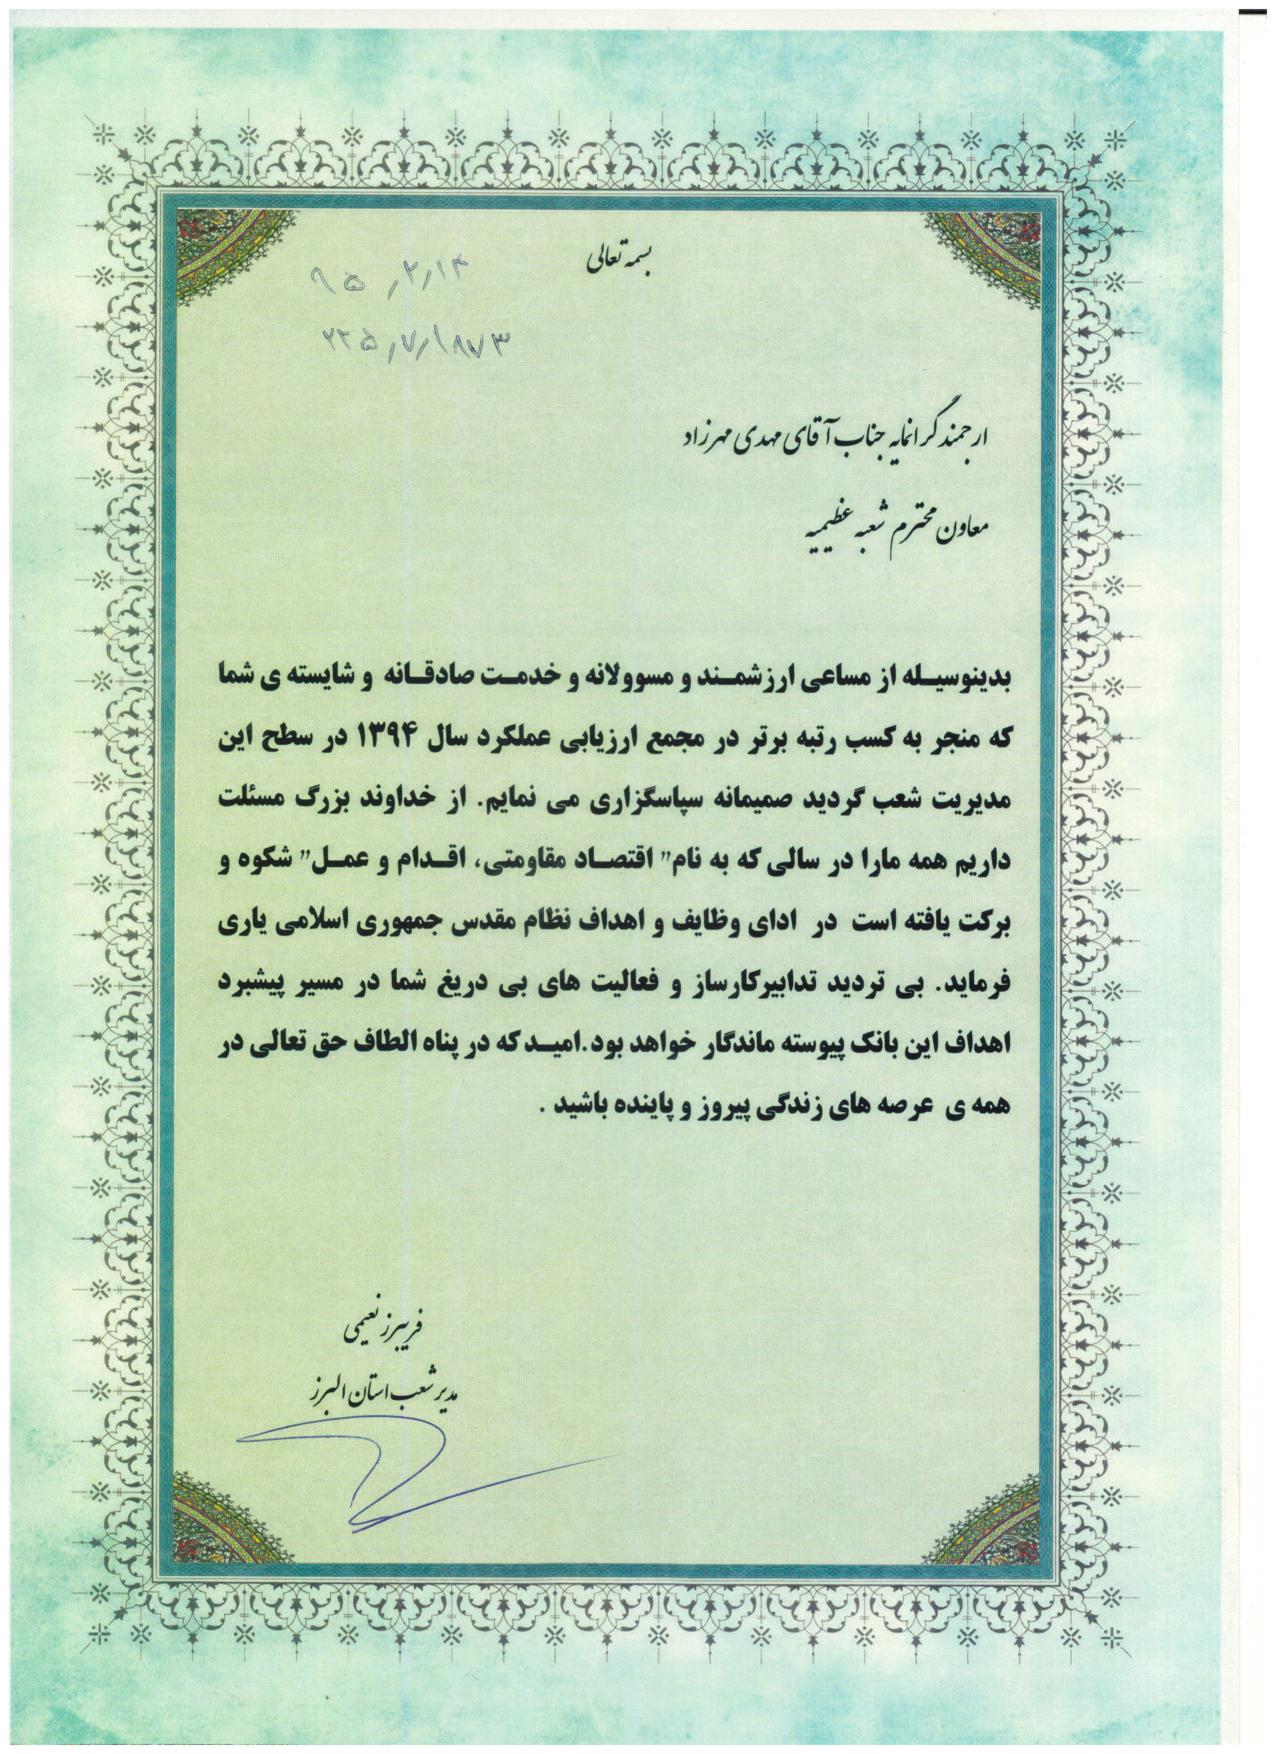 بسمه تعالی
۹۵/۲/۱۴
۲۲۵/۷/۱۸۷۳
ارجمند گرانمایه جناب آقای مهدی مهرزاد
معاون محترم شعبه عظیمیه
بدینوسیله از مساعی ارزشمند و مسوولانه و خدمت صادقانه و شایسته ی شما
که منجر به کسب رتبه برتر در مجمع ارزیابی عملکرد سال ۱۳۹۴ در سطح این
مدیریت شعب گردید صمیمانه سپاسگزاری می نمایم. از خداوند بزرگ مسئلت
داریم همه مارا در سالی که به نام" اقتصاد مقاومتی، اقدام و عمل" شکوه و
برکت یافته است در ادای وظایف و اهداف نظام مقدس جمهوری اسلامی یاری
فرماید. بی تردید تدابیرکارساز و فعالیت های بی دریغ شما در مسیر پیشبرد
اهداف این بانک پیوسته ماندگار خواهد بود.امید که در پناه الطاف حق تعالی در
همه ی عرصه های زندگی پیروز و پاینده باشید .
فریبرز نعیمی
مدیر شعب استان البرز